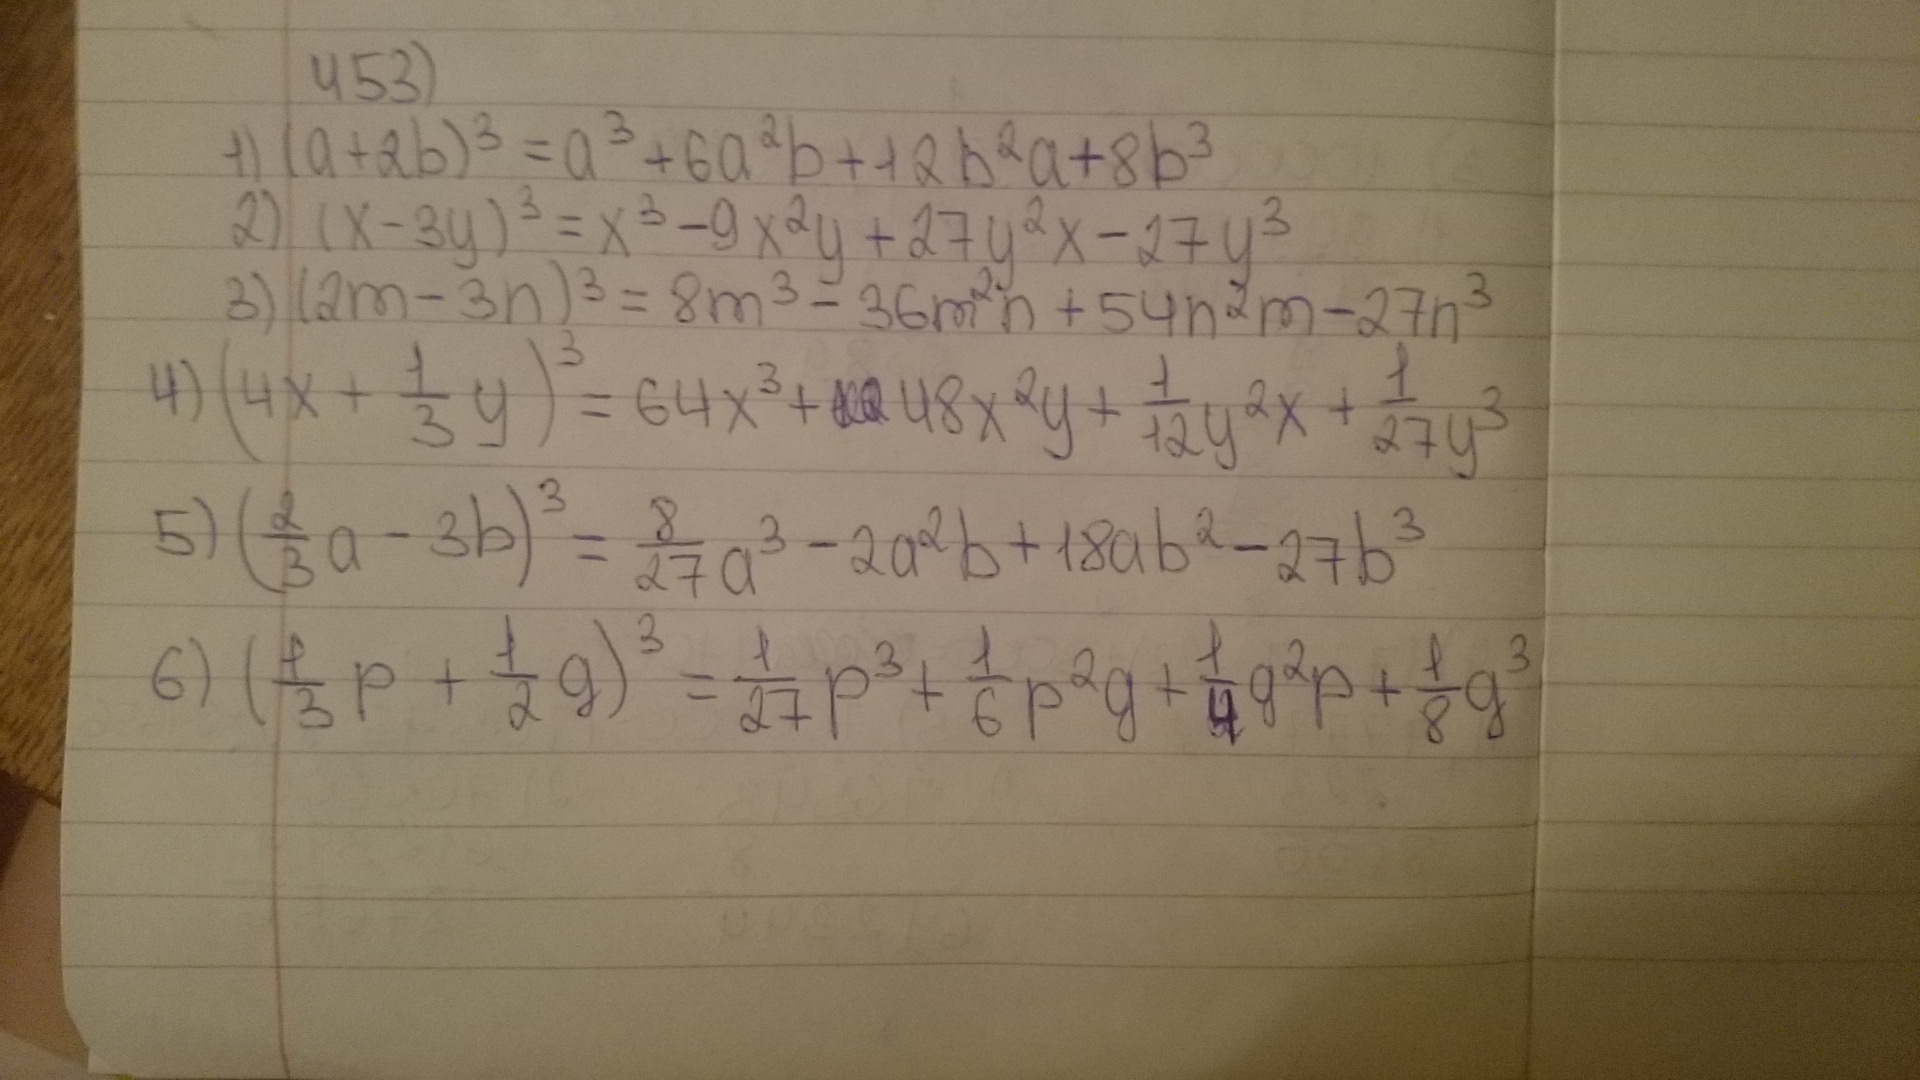 453)
1) (a+2b)³ = a³ + 6a²b + 12b²a + 8b³
2) (x - 3y)³ = x³ - 9x²y + 27y²x - 27y³
3) (2m - 3n)³ = 8m³ - 36m²n + 54n²m - 27n³
4) (4x + 1/3 y)³ = 64x³ + 48x²y + 1/12 y²x + 1/27 y³
5) (2/3 a - 3b)³ = 8/27 a³ - 2a²b + 18ab² - 27b³
6) (1/3 p + 1/2 g)³ = 1/27 p³ + 1/6 p²g + 1/4 g²p + 1/8 g³